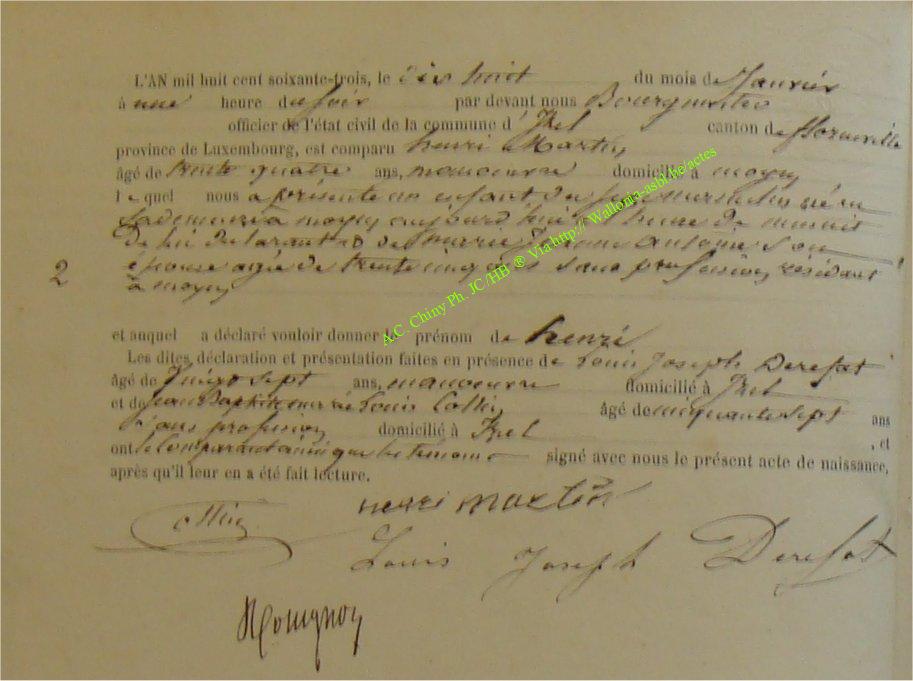 L'AN mil huit cent soixante-trois, le dix huit du mois de Janvier
à une heure du soir par devant nous Bourgmestre
officier de l'état civil de la commune d' Izel canton de florenville
province de Luxembourg, est comparu henri Martin
âgé de trente quatre ans, manoeuvre domicilié à moyen
lequel nous a présenté un enfant du sexe masculin né en
sa demeure à moyen aujourd'hui à heure de
de lui déclarant et de marie Antoine son
2 épouse agée de trente cinq ans sans profession résidant
à moyen
et auquel a déclaré vouloir donner le prénom de henri
Les dites déclaration et présentation faites en présence de Louis Joseph Derefat
âgé de sept ans, manoeuvre domicilié à Izel
et de Jean Baptiste Louis Collin âgé de cinquante sept ans
sans profession domicilié à Izel , et
ont le comparant ainsi que les témoins signé avec nous le présent acte de naissance,
après qu'il leur en a été fait lecture.
Collin henri martin
Louis Joseph Derefat
A.C. Chiny Ph. JC/HB ® Via http://Wallonia-asbl.be/actes